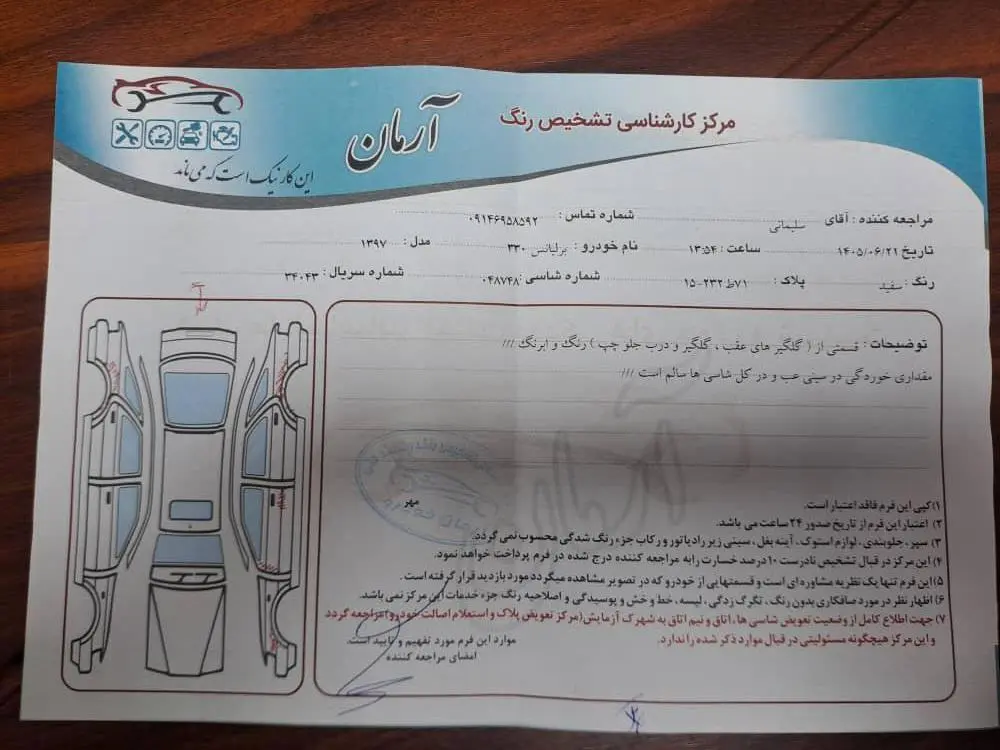 مرکز کارشناسی تشخیص رنگ
آرمان
این کار نیک است که می ماند
مراجعه کننده : آقای سلیمانی شماره تماس : ۰۹۱۴۶۹۵۸۵۹۲
تاریخ ۱۴۰۵/۰۶/۲۱ ساعت : ۱۳:۵۴ نام خودرو : برلیانس ۳۳۰ مدل : ۱۳۹۷
رنگ : سفید پلاک : ۷۱ط۲۳۲-۱۵ شماره شاسی : ۰۴۸۷۴۸ شماره سریال : ۳۴۰۴۳
توضیحات : قسمتی از ( گلگیر های عقب ، گلگیر و درب جلو چپ ) رنگ و ابرنگ ///
مقداری خوردگی در سینی عب و در کل شاسی ها سالم است ///
مهر
۱)کپی این فرم فاقد اعتبار است.
۲) اعتبار این فرم از تاریخ صدور ۲۴ ساعت می باشد.
۳) سپر، جلوبندی، لوازم استوک، آینه بغل، سینی زیر رادیاتور و رکاب جزء رنگ شدگی محسوب نمی گردد.
۴) این مرکز در قبال تشخیص نادرست ۱۰ درصد خسارت را به مراجعه کننده درج شده در فرم پرداخت خواهد نمود.
۵) این فرم تنها یک نظریه مشاوره ای است و قسمتهایی از خودرو که در تصویر مشاهده میگردد مورد بازدید قرار گرفته است.
۶) اظهار نظر در مورد صافکاری بدون رنگ، تگرگ زدگی، لیسه، خط و خش و پوسیدگی و اصلاحیه رنگ جزء خدمات این مرکز نمی باشد.
۷) جهت اطلاع کامل از وضعیت تعویض شاسی ها، اتاق و نیم اتاق به شهرک آزمایش(مرکز تعویض پلاک و استعلام اصالت خودرو)مراجعه گردد
و این مرکز هیچگونه مسئولیتی در قبال موارد ذکر شده را ندارد.
موارد این فرم مورد تفهیم و تایید است.
امضای مراجعه کننده